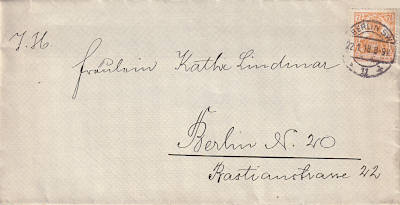 J. H.
Fräulein Käthe Lindmar
Berlin N. 20
Bastianstrasse 22
BERLIN S.W.
11